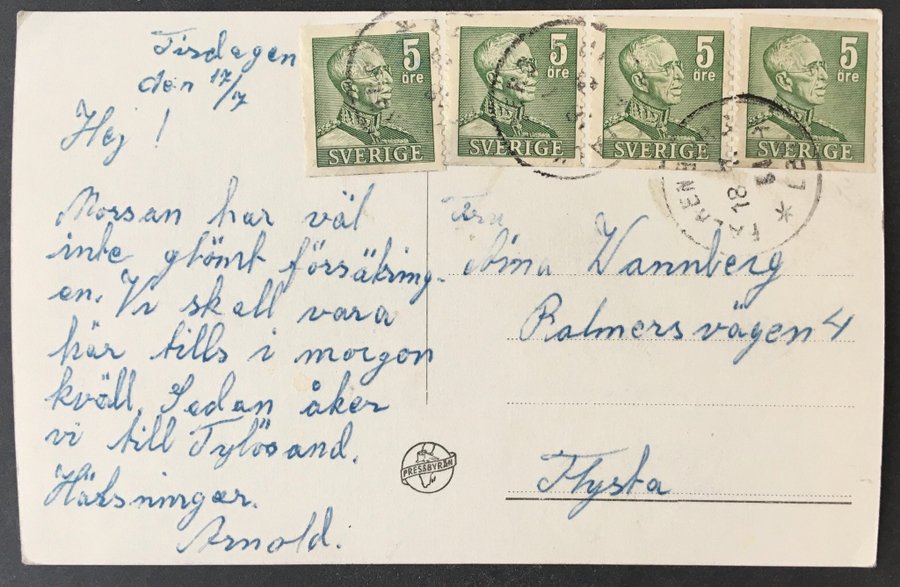 Tisdagen
den 17/7
Hej!
Morsan har väl
inte glömt försäkring-
en. Vi skall vara
här tills i morgon
kväll. Sedan åker
vi till Tylösand.
Hälsningar.
Arnold.
5 öre
SVERIGE
5 öre
SVERIGE
5 öre
SVERIGE
5 öre
SVERIGE
18
Fru
Wannberg
Palmersvägen 4
Flysta
PRESSBYRÅN